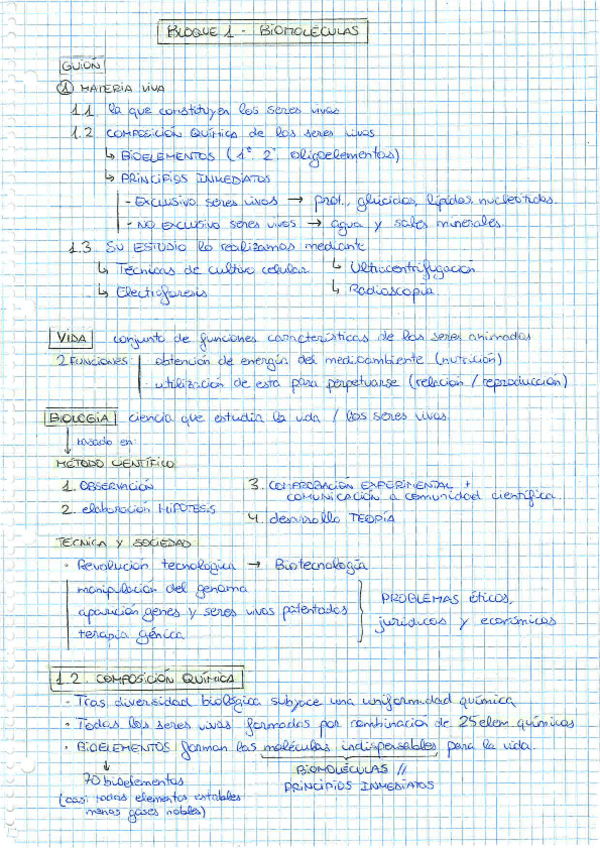 BLOQUE 1 - BIOMOLÉCULAS
GUIÓN
① MATERIA VIVA
1.1. la que constituyen los seres vivos
1.2 COMPOSICIÓN QUÍMICA de los seres vivos
↳ BIOELEMENTOS (1º 2º oligoelementos)
↳ PRINCIPIOS INMEDIATOS
- EXCLUSIVO seres vivos → prot., glúcidos, lípidos, nucleótidos.
- NO EXCLUSIVO seres vivos → agua y sales minerales.
1.3. SU ESTUDIO lo realizamos mediante
↳ Técnicas de cultivo celular ↳ Ultracentrifugación
↳ Electroforesis ↳ Radioscopia
VIDA conjunto de funciones características de los seres animados
2 FUNCIONES: · obtención de energía del medioambiente (nutrición)
· utilización de esta para perpetuarse (relación / reproducción)
BIOLOGÍA ciencia que estudia la vida / los seres vivos
↓ basado en
MÉTODO CIENTÍFICO
1. OBSERVACIÓN
2. elaboración HIPÓTESIS
3. COMPROBACIÓN EXPERIMENTAL + COMUNICACIÓN a comunidad científica.
4. desarrollo TEORÍA
TÉCNICA Y SOCIEDAD
· Revolución tecnológica → Biotecnología
manipulación del genoma
aparición genes y seres vivos patentados
terapia génica
PROBLEMAS éticos,
jurídicos y económicos
1.2. COMPOSICIÓN QUÍMICA
· Tras diversidad biológica subyace una uniformidad química
· Todos los seres vivos formados por combinación de 25 elem. químicos
· BIOELEMENTOS forman las moléculas indispensables para la vida.
↓
70 bioelementos
(casi todos elementos estables
menos gases nobles)
BIOMOLÉCULAS //
PRINCIPIOS INMEDIATOS